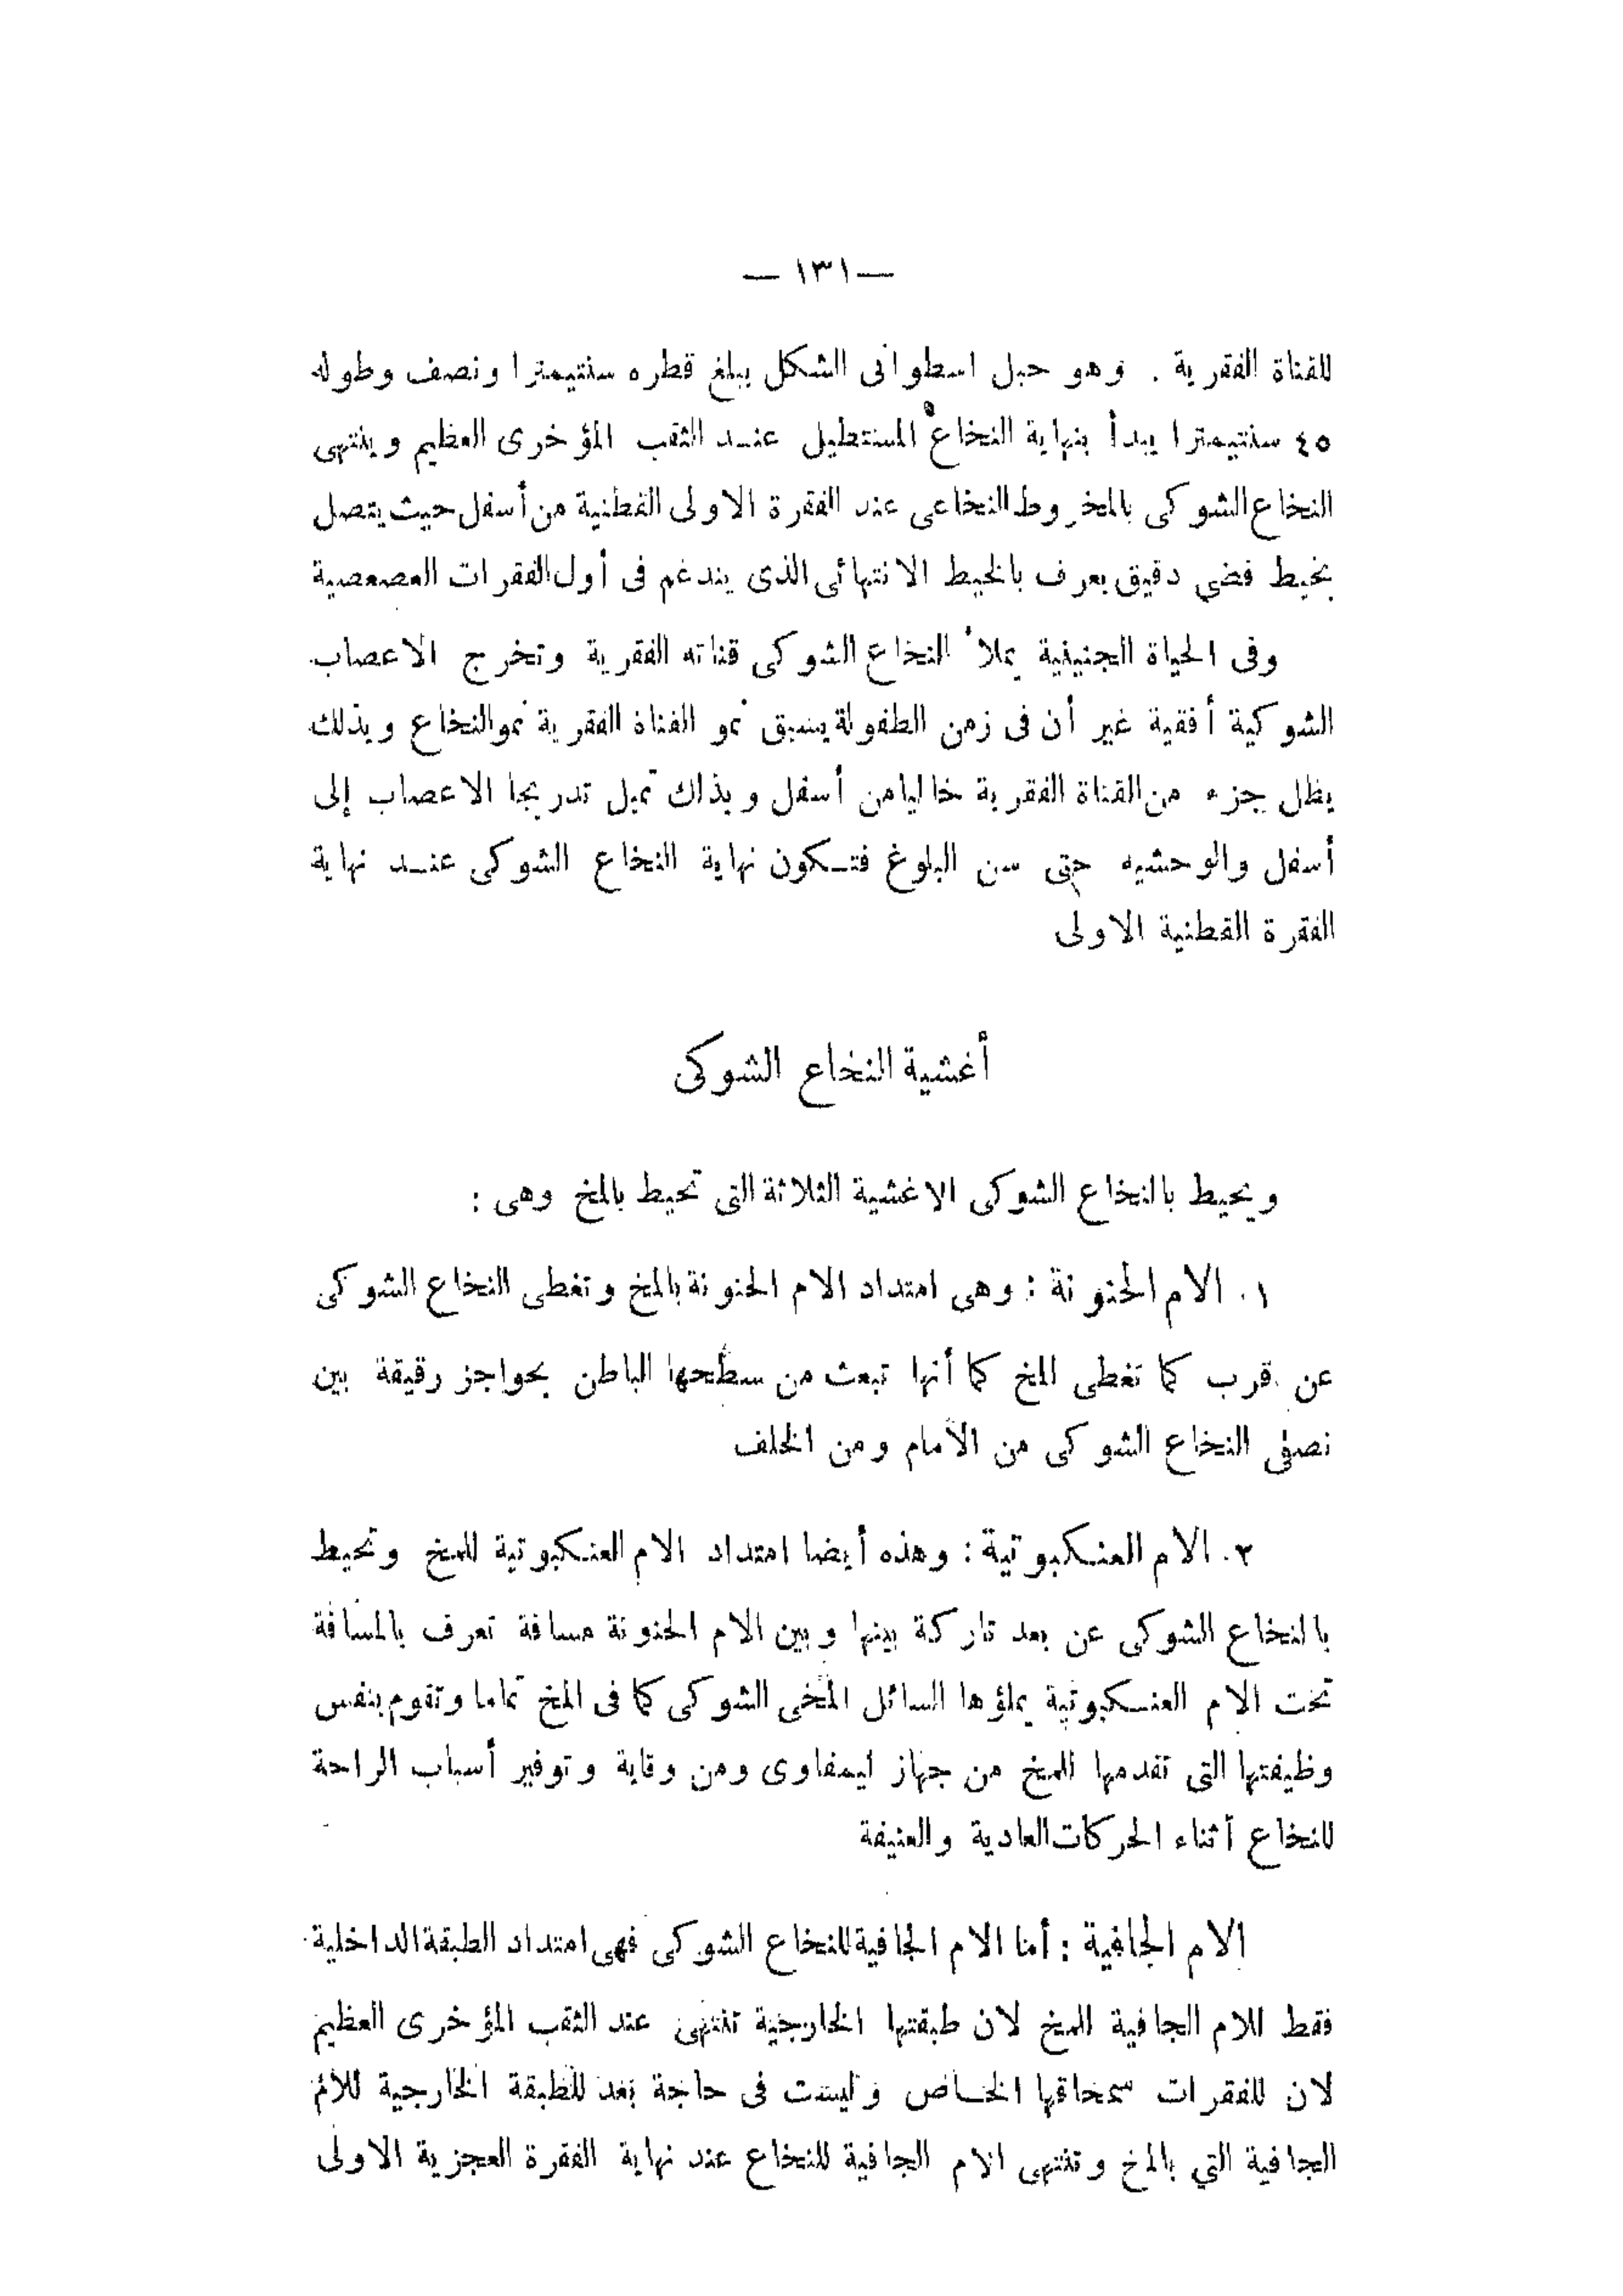 — ١٣١ —
للقناة الفقرية . وهو حبل اسطوانى الشكل يبلغ قطره سنتيمترا ونصف وطوله
٤٥ سنتيمترا يبدأ بنهاية النخاع المستطيل عند الثقب المؤخرى العظيم وينتهى
النخاع الشوكى بالمخروط النخاعى عند الفقرة الاولى القطنية من أسفل حيث يتصل
بخيط فضي دقيق يعرف بالخيط الانتهائى الذى يندغم فى أول الفقرات العصعصية
وفى الحياة الجنينية يملأ النخاع الشوكى قناته الفقرية وتخرج الاعصاب
الشوكية أفقية غير أن فى زمن الطفولة يسبق نمو القناة الفقرية نمو النخاع وبذلك
يظل جزء من القناة الفقرية خاليا من أسفل وبذلك تميل تدريجا الاعصاب إلى
أسفل والوحشيه حتى سن البلوغ فتكون نهاية النخاع الشوكى عند نهاية
الفقرة القطنية الاولى
أغشية النخاع الشوكى
ويحيط بالنخاع الشوكى الاغشية الثلاثة التى تحيط بالمخ وهى :
١. الام الحنونة : وهى امتداد الام الحنونة بالمخ وتغطى النخاع الشوكى
عن قرب كما تغطى المخ كما أنها تبعث من سطحها الباطن بحواجز رقيقة بين
نصفى النخاع الشوكى من الأمام ومن الخلف
٢. الام العنكبوتية : وهذه أيضا امتداد الام العنكبوتية للمخ وتحيط
بالنخاع الشوكى عن بعد تاركة بينها وبين الام الحنونة مسافة تعرف بالمسافة
تحت الام العنكبوتية يملؤها السائل المخى الشوكى كما فى المخ تماما وتقوم بنفس
وظيفتها التى تقدمها للمخ من جهاز ليمفاوى ومن وقاية وتوفير أسباب الراحة
للنخاع أثناء الحركات العادية والعنيفة
الام الجافية : أما الام الجافية للنخاع الشوكى فهى امتداد الطبقة الداخلية
فقط للام الجافية للمخ لان طبقتها الخارجية تنتهى عند الثقب المؤخرى العظيم
لان للفقرات سمحاقها الخاص وليست فى حاجة بعد للطبقة الخارجية للأم
الجافية التي بالمخ وتنتهى الام الجافية للنخاع عند نهاية الفقرة العجزية الاولى